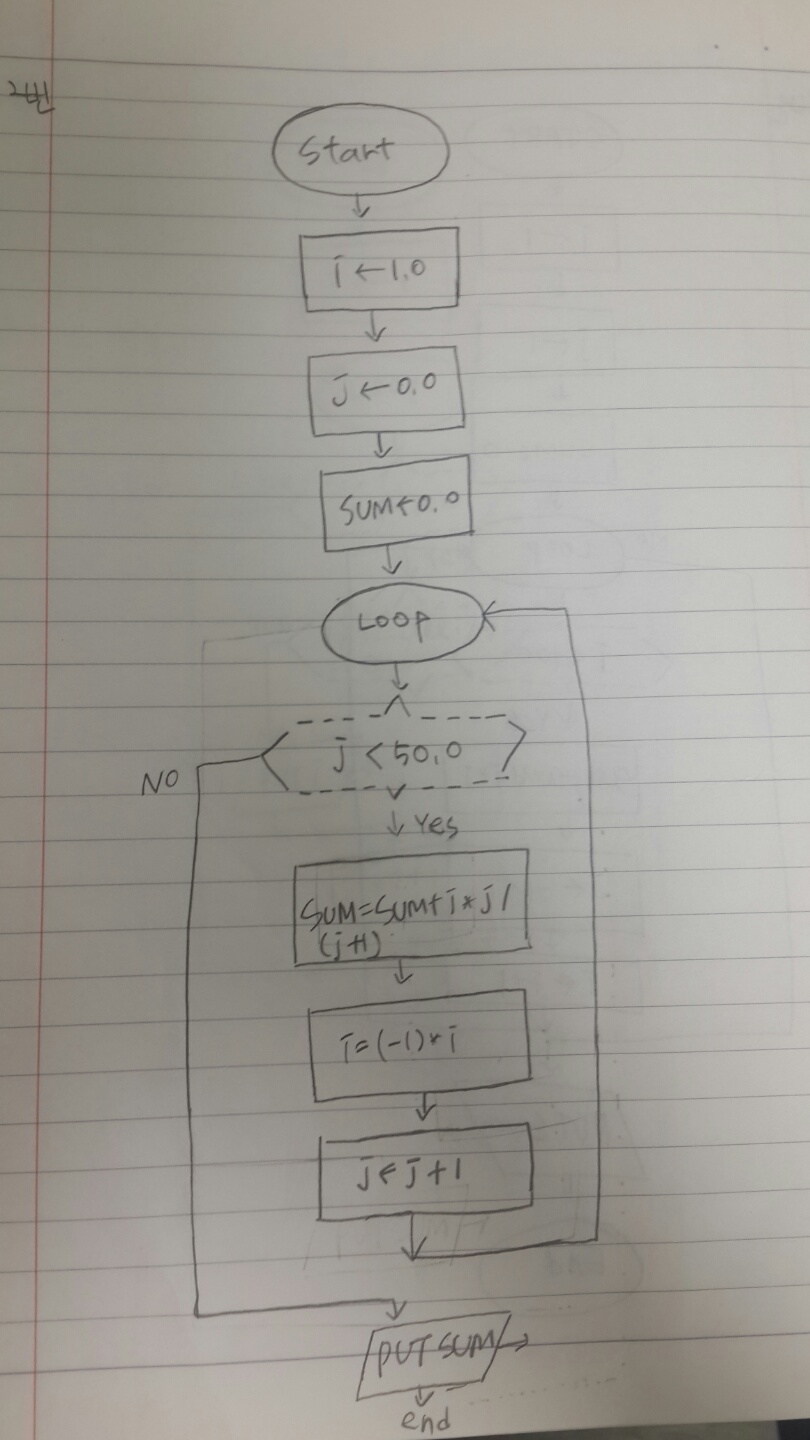 2번
Start
i ← 1.0
j ← 0.0
SUM ← 0.0
LOOP
j < 50.0
NO
Yes
SUM=SUM+i*j/
(j+1)
i=(-1)*i
j ← j+1
PUT SUM
end